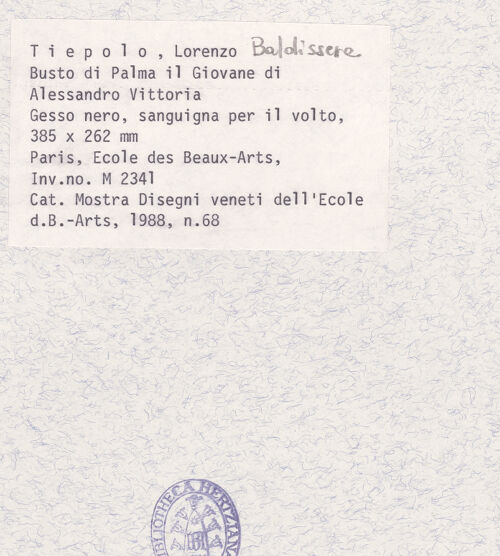 T i e p o l o , Lorenzo Baldissera
Busto di Palma il Giovane di
Alessandro Vittoria
Gesso nero, sanguigna per il volto,
385 x 262 mm
Paris, Ecole des Beaux-Arts,
Inv.no. M 2341
Cat. Mostra Disegni veneti dell'Ecole
d.B.-Arts, 1988, n.68
BIBLIOTHECA HERTZIANA